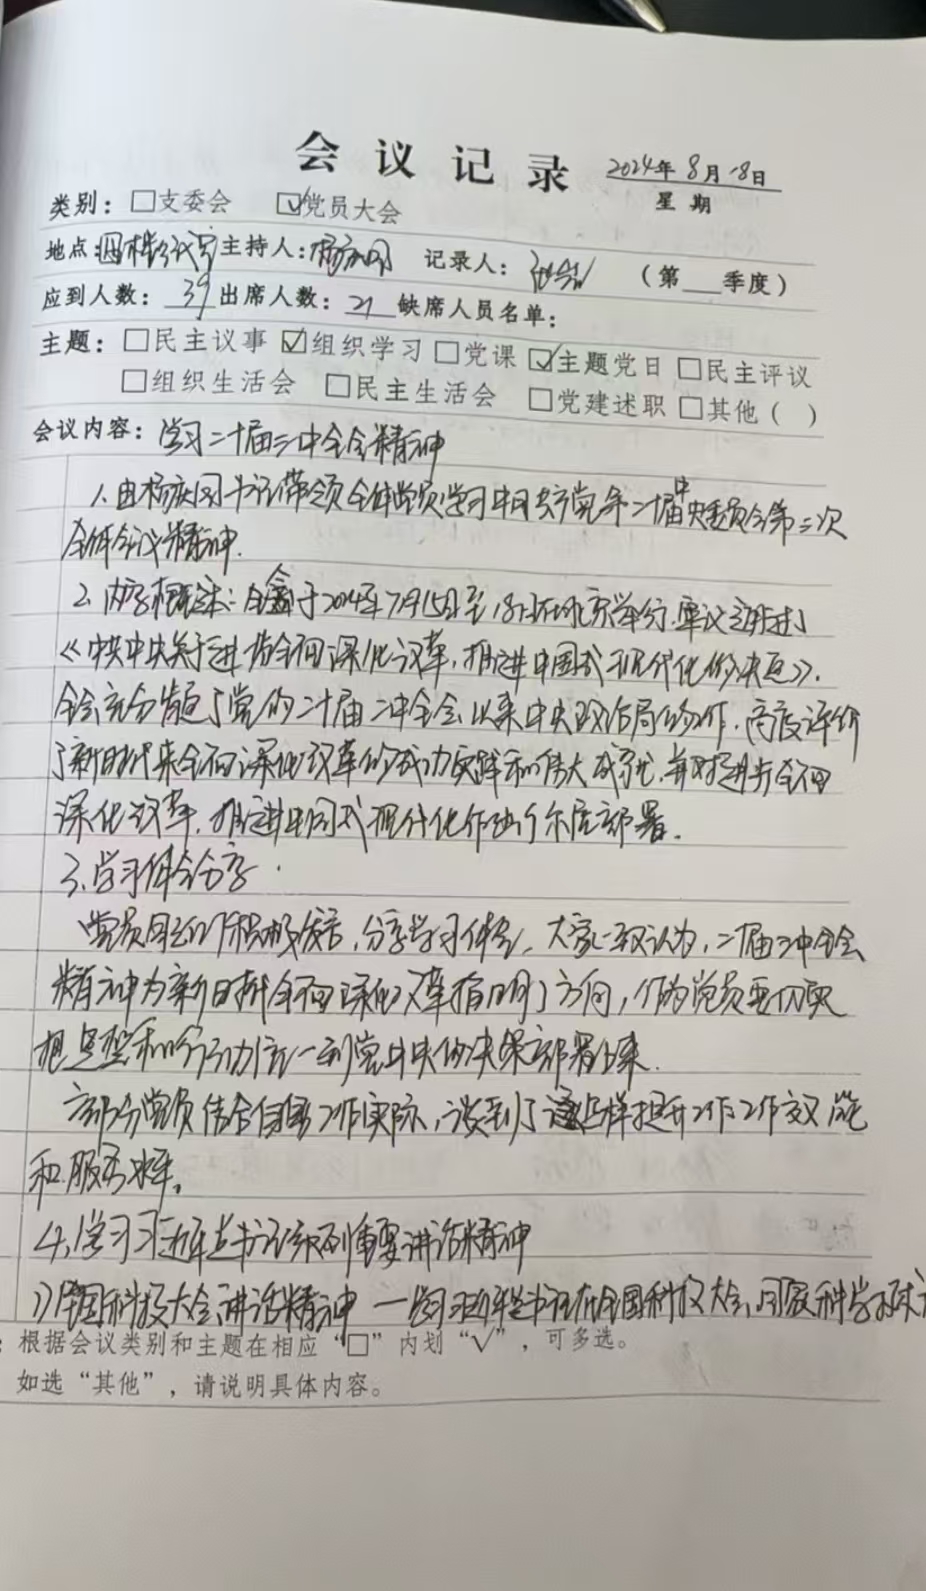 会议记录 2024年8月18日
星期
类别：□支委会 ☑党员大会
地点：四楼会议室 主持人： 记录人： （第 季度）
应到人数：39 出席人数：21 缺席人员名单：
主题：□民主议事 ☑组织学习 □党课 ☑主题党日 □民主评议
□组织生活会 □民主生活会 □党建述职 □其他（ ）
会议内容：学习二十届三中全会精神
1.由杨 书记带领全体党员学习中国共产党第二十届中央委员会第三次
全体会议精神.
2.内容概述：全会于2024年7月15日至18日在北京举行.审议通过了
《中共中央关于进一步全面深化改革,推进中国式现代化的决定》.
全会充分肯定了党的二十届二中全会以来中央政治局的工作.高度评价
了新时代来全面深化改革的成功实践和伟大成就,并对进一步全面
深化改革.推进中国式现代化作出了 部署.
3.学习体会分享.
党员同志们积极发言,分享学习体会.大家一致认为,二十届三中全会
精神为新时代全面深化改革指明了方向,作为党员要切实
把思想和行动统一到党中央的决策部署上来.
部分党员结合自身工作实际,谈到了 怎样提升工作工作效能
和服务水平.
4.学习习近平总书记系列重要讲话精神
1)全国科技大会讲话精神—学习习近平总书记在全国科技大会,国家科学技术
：根据会议类别和主题在相应“□”内划“√”，可多选。
如选“其他”，请说明具体内容。